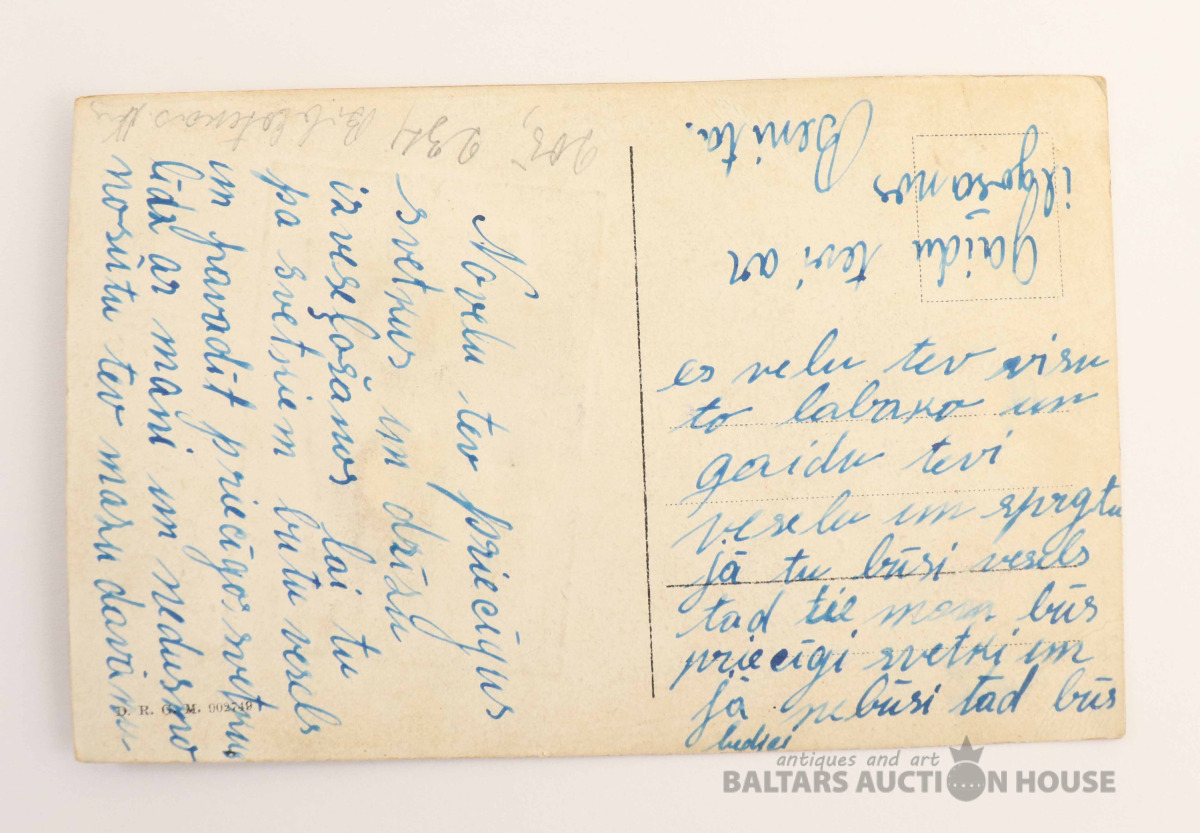 Novelu tev priecīgus
svetkus un drīzu
izveseļošanos lai tu
pa svetkiem butu vesels
un pavadit priecīgos svetkus
līdz ar mani un nedusmo
nosūtu tev mazu davinu
es velu tev visu
to labako un
gaidu tevi
veselu un sprgtu
jā tu būsi vesels
tad tie man būs
priecīgi svetki un
jā nebūsi tad būs
bedrai
Gaidu tevi ar
ilgošanos
Benita.
D. R. G. M. 902749
antiques and art
BALTARS AUCTION HOUSE